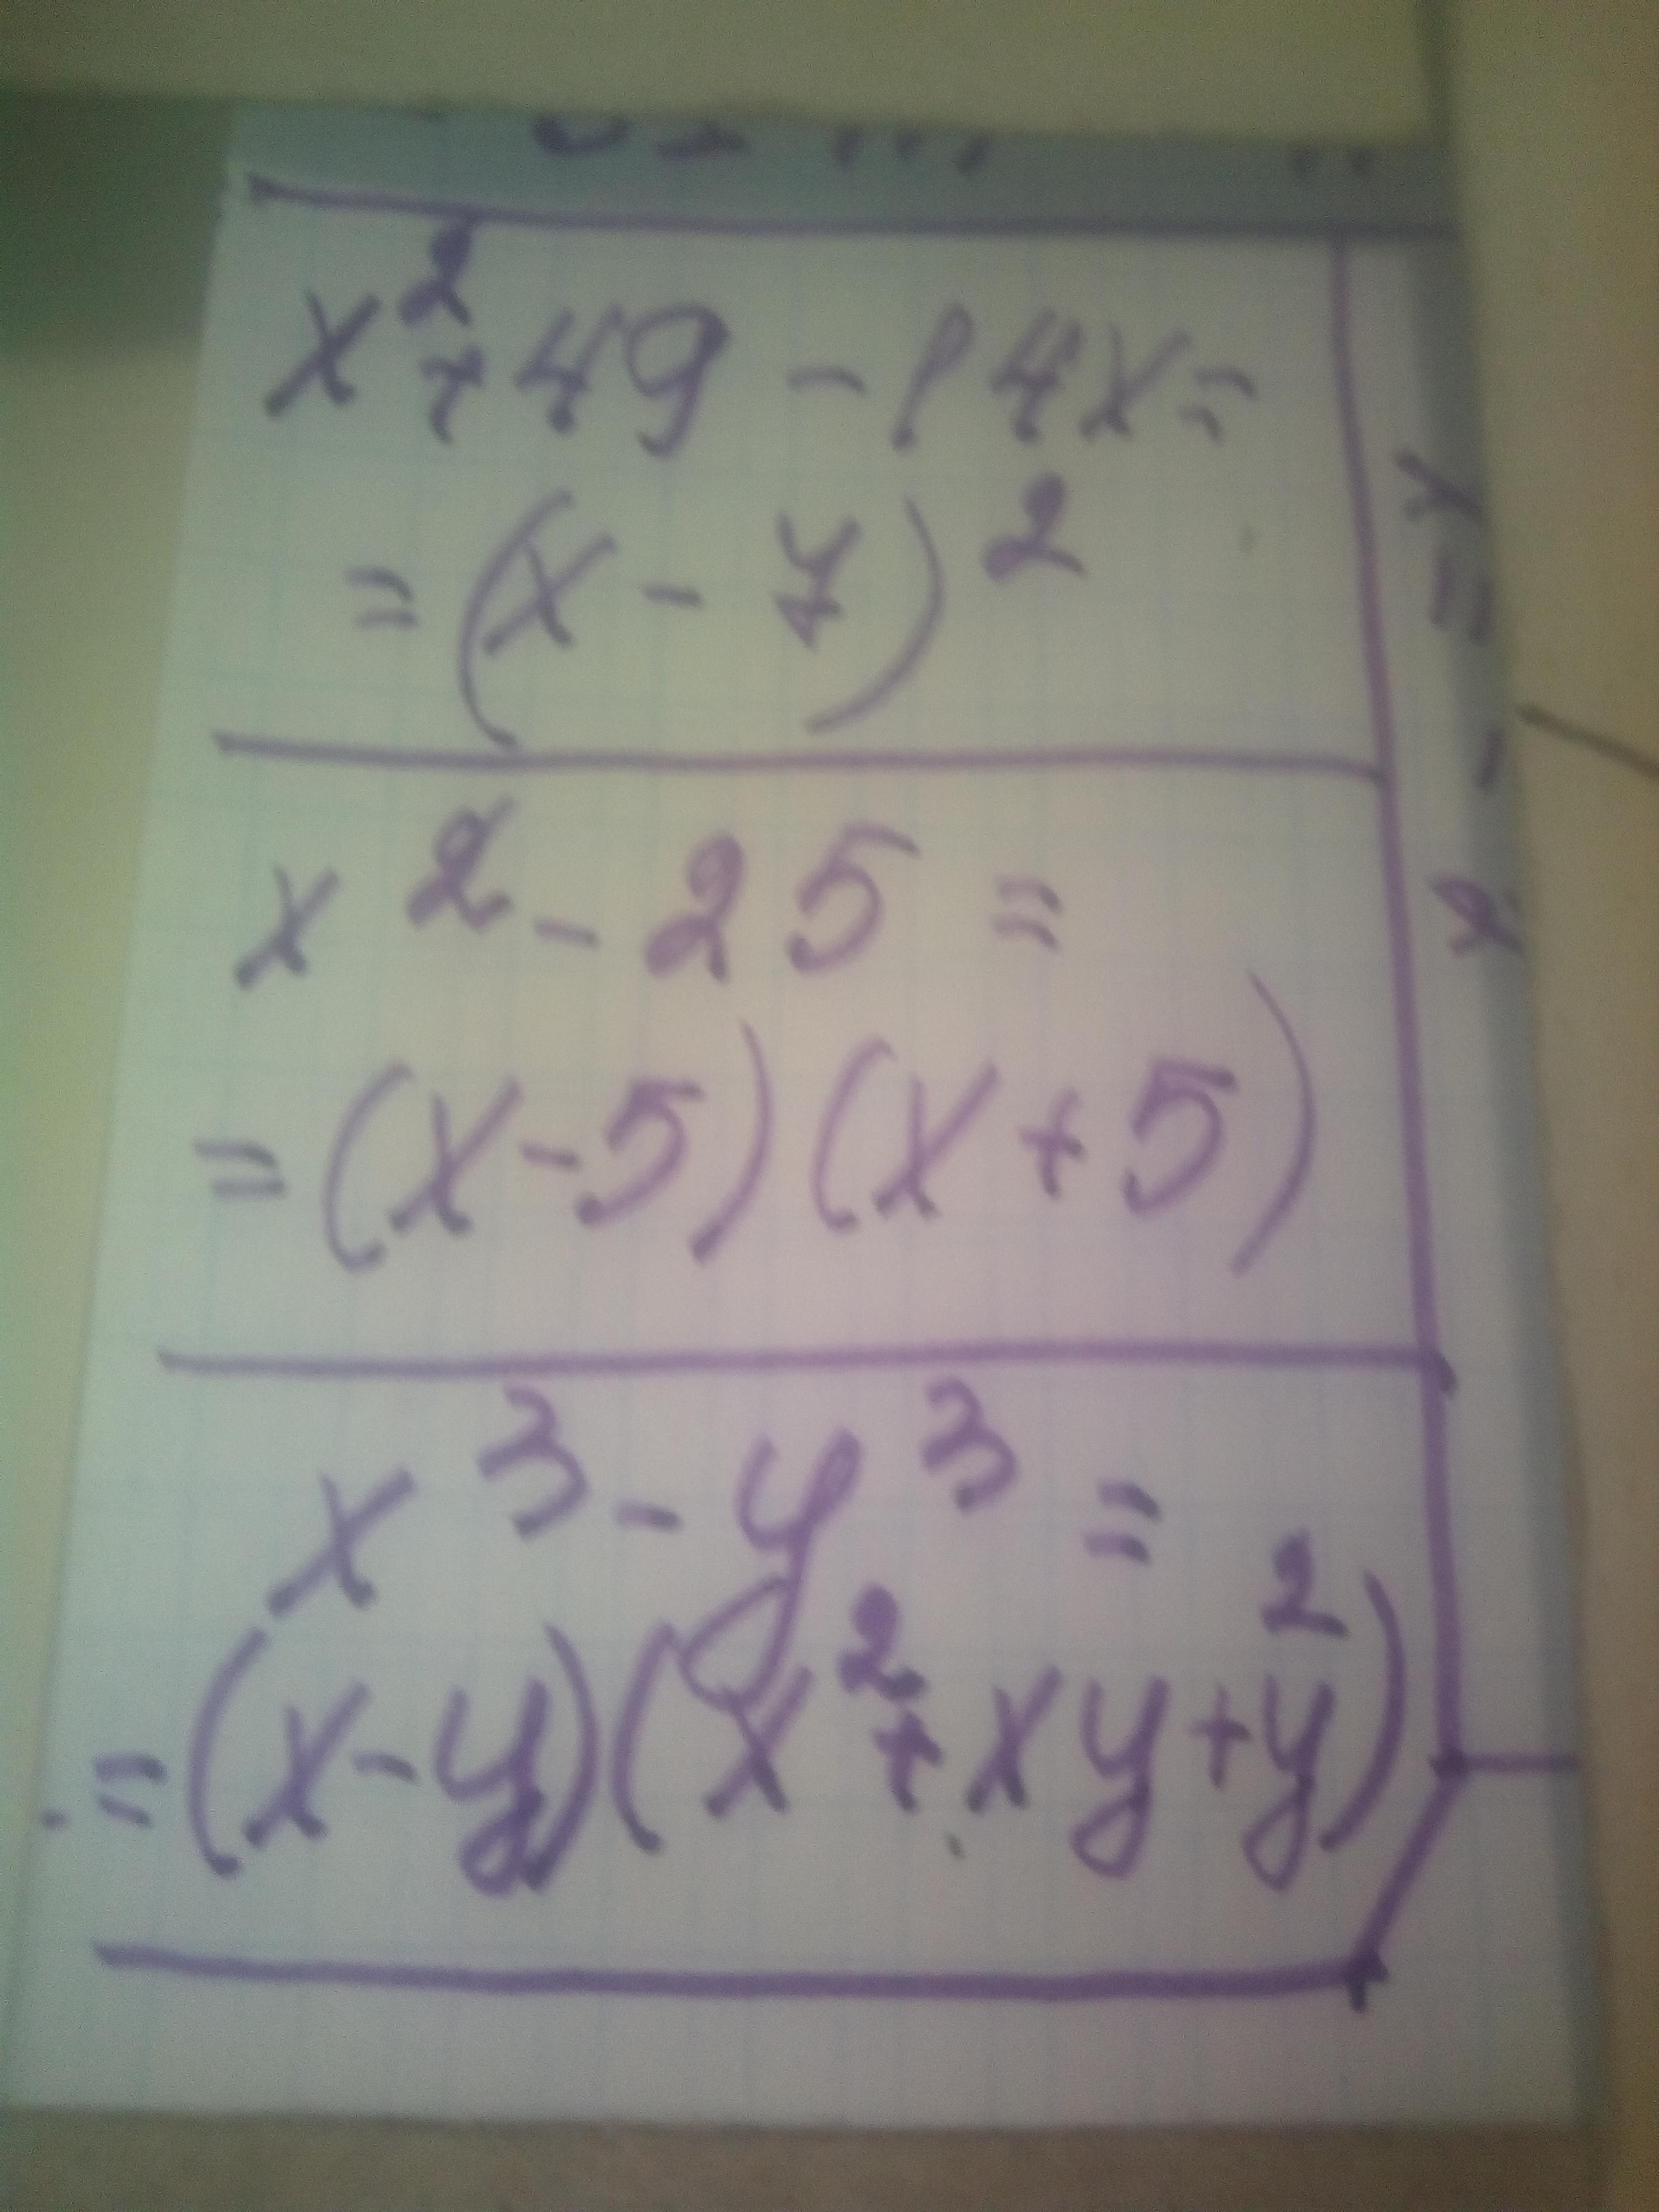 x²+49-14x=
=(x-7)²
x²-25=
=(x-5)(x+5)
x³-y³=
=(x-y)(x²+xy+y²)